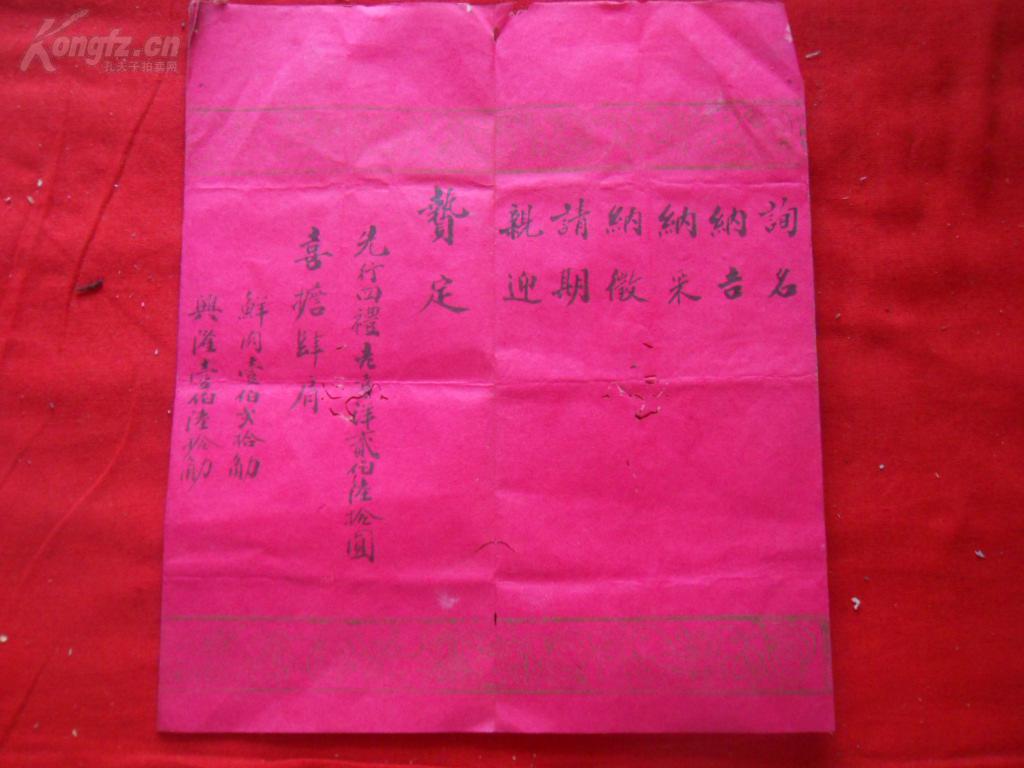 詢名
納吉
納采
納徵
請期
親迎
贄定
先行四禮老海洋貳伯陸拾圓
喜擔肆肩
鮮肉壹伯弍拾觔
興隆壹伯陸拾觔
Kongfz.cn
孔夫子拍卖网